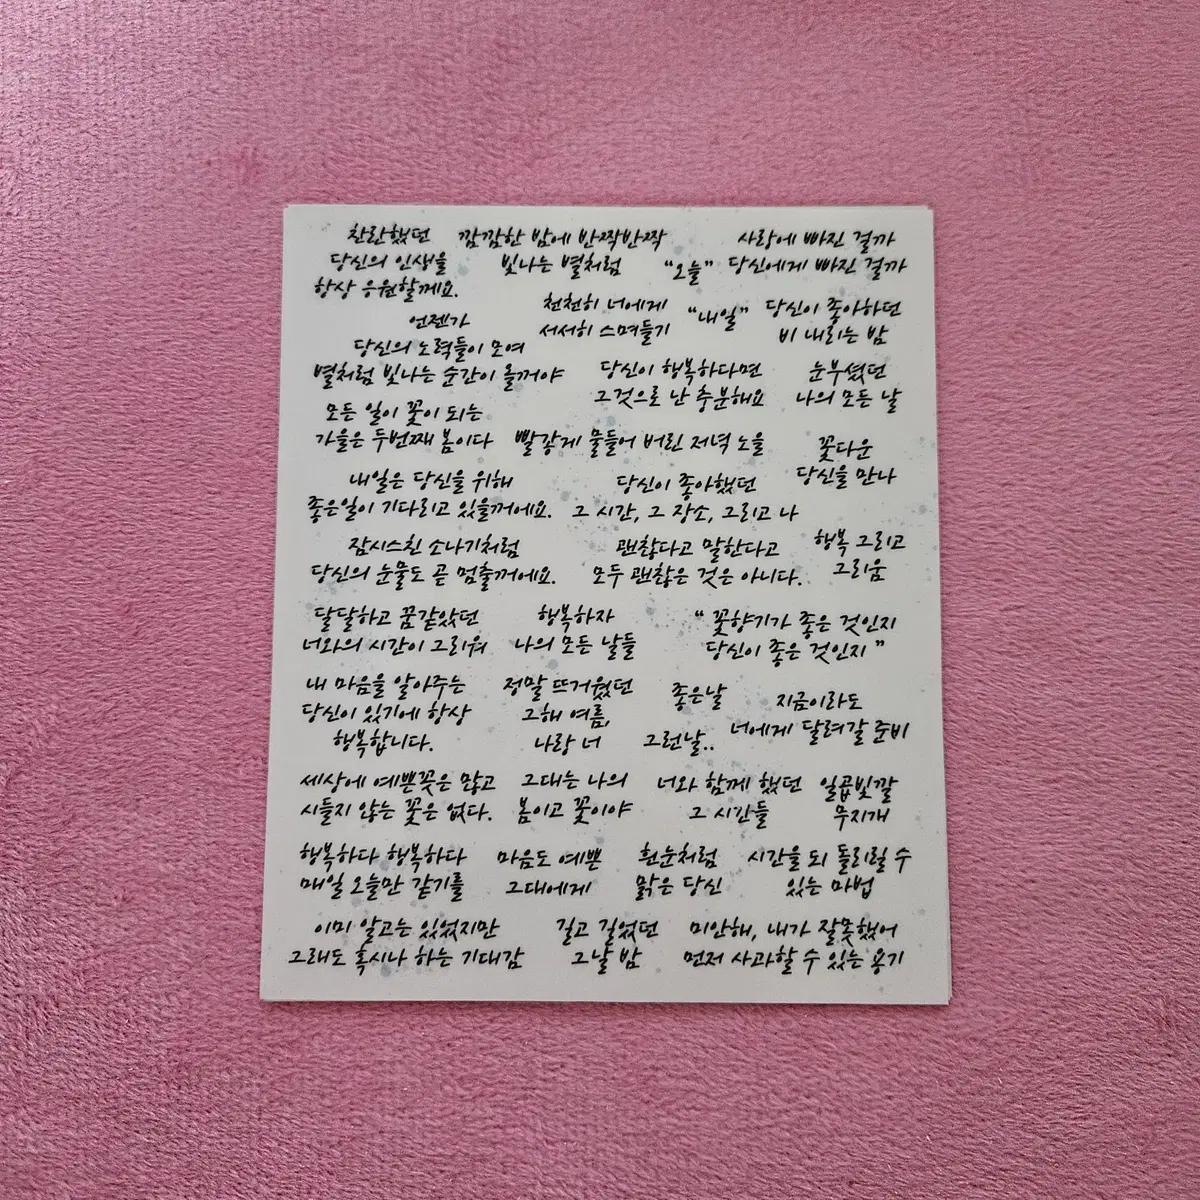 찬란했던
당신의 인생을
항상 응원할께요.
깜깜한 밤에 반짝반짝
빛나는 별처럼
"오늘"
사랑에 빠진 걸까
당신에게 빠진 걸까
언젠가
당신의 노력들이 모여
별처럼 빛나는 순간이 올꺼야
천천히 너에게
서서히 스며들기
"내일"
당신이 좋아하던
비 내리는 밤
당신이 행복하다면
그것으로 난 충분해요
눈부셨던
나의 모든 날
모든 일이 꽃이 되는
가을은 두번째 봄이다
빨갛게 물들어 버린 저녁 노을
꽃다운
당신을 만나
내일은 당신을 위해
좋은일이 기다리고 있을꺼에요.
당신이 좋아했던
그 시간, 그 장소, 그리고 나
잠시스친 소나기처럼
당신의 눈물도 곧 멈출꺼에요.
괜찮다고 말한다고
모두 괜찮은 것은 아니다.
행복 그리고
그리움
달달하고 꿈같았던
너와의 시간이 그리워
행복하자
나의 모든 날들
"꽃향기가 좋은 것인지
당신이 좋은 것인지"
내 마음을 알아주는
당신이 있기에 항상
행복합니다.
정말 뜨거웠던
그해 여름,
나랑 너
좋은날
그런날..
지금이라도
너에게 달려갈 준비
세상에 예쁜꽃은 많고
시들지 않는 꽃은 없다.
그대는 나의
봄이고 꽃이야
너와 함께 했던
그 시간들
일곱빛깔
무지개
행복하다 행복하다
매일 오늘만 같기를
마음도 예쁜
그대에게
흰눈처럼
맑은 당신
시간을 되 돌리릴 수
있는 마법
이미 알고는 있었지만
그래도 혹시나 하는 기대감
길고 길었던
그날 밤
미안해, 내가 잘못했어
먼저 사과할 수 있는 용기